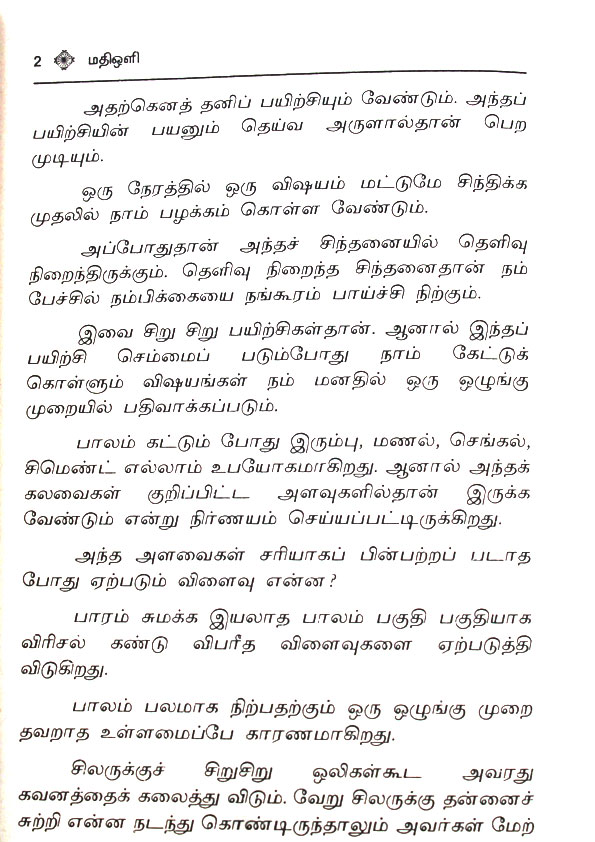 2 மதிஒளி
அதற்கெனத் தனிப் பயிற்சியும் வேண்டும். அந்தப்
பயிற்சியின் பயனும் தெய்வ அருளால்தான் பெற
முடியும்.
ஒரு நேரத்தில் ஒரு விஷயம் மட்டுமே சிந்திக்க
முதலில் நாம் பழக்கம் கொள்ள வேண்டும்.
அப்போதுதான் அந்தச் சிந்தனையில் தெளிவு
நிறைந்திருக்கும். தெளிவு நிறைந்த சிந்தனைதான் நம்
பேச்சில் நம்பிக்கையை நங்கூரம் பாய்ச்சி நிற்கும்.
இவை சிறு சிறு பயிற்சிகள்தான். ஆனால் இந்தப்
பயிற்சி செம்மைப் படும்போது நாம் கேட்டுக்
கொள்ளும் விஷயங்கள் நம் மனதில் ஒரு ஒழுங்கு
முறையில் பதிவாக்கப்படும்.
பாலம் கட்டும் போது இரும்பு, மணல், செங்கல்,
சிமெண்ட் எல்லாம் உபயோகமாகிறது. ஆனால் அந்தக்
கலவைகள் குறிப்பிட்ட அளவுகளில்தான் இருக்க
வேண்டும் என்று நிர்ணயம் செய்யப்பட்டிருக்கிறது.
அந்த அளவைகள் சரியாகப் பின்பற்றப் படாத
போது ஏற்படும் விளைவு என்ன?
பாரம் சுமக்க இயலாத பாலம் பகுதி பகுதியாக
விரிசல் கண்டு விபரீத விளைவுகளை ஏற்படுத்தி
விடுகிறது.
பாலம் பலமாக நிற்பதற்கும் ஒரு ஒழுங்கு முறை
தவறாத உள்ளமைப்பே காரணமாகிறது.
சிலருக்குச் சிறுசிறு ஒலிகள்கூட அவரது
கவனத்தைக் கலைத்து விடும். வேறு சிலருக்கு தன்னைச்
சுற்றி என்ன நடந்து கொண்டிருந்தாலும் அவர்கள் மேற்